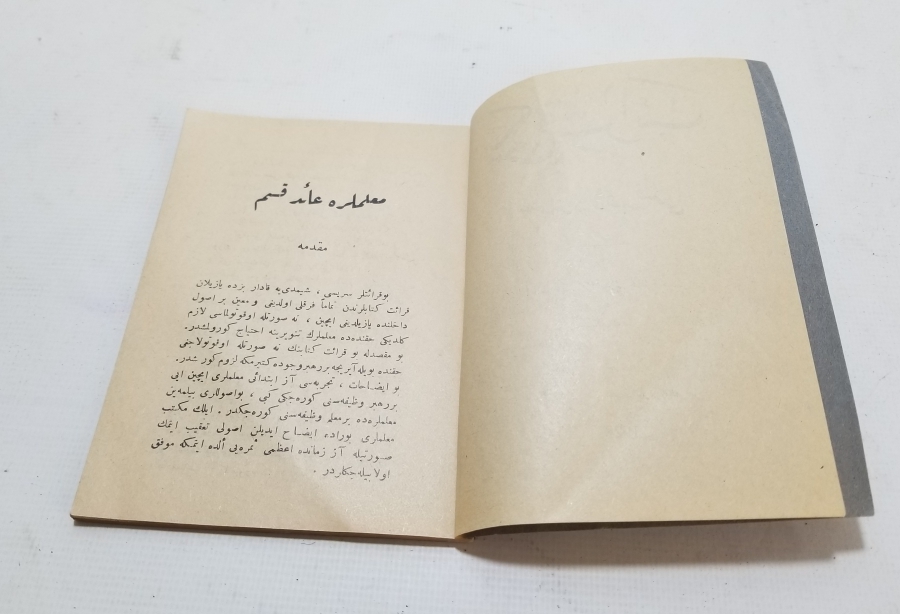 معلملره عائد قسم
مقدمه
بوقرائتلر سریسی ، شیمدی‌یه قادار بزده یازیلان
قرائت كتابلرندن تماماً فرقلی اولدیغی و معین بر اصول
داخلنده یازیلدیغی ایچین ، نه صورتله اوقوتولماسی لازم
كلدیكی حقنده‌ده معلملرك تنویرینه احتیاج كورولشدر.
بو مقصدله بو قرائت كتابنك نه صورتله اوقوتولاجغی
حقنده بویله آیریجه بررهبر وجوده كتیرمكه لزوم كورشدر.
بو ایضاحات ، تجربه‌سی آز ابتدائی معلملری ایچین ایی
بررهبر وظیفه‌سنی كوره‌جكی كبی ، بواصوللری بیلمه‌ین
معلملره‌ده برمعلم وظیفه‌سنی كوره‌جكدر . ایلك مكتب
معلملری بوراده ایضاح ایدیلن اصولی تعقیب ایتمك
صورتیله آز زمانده اعظمی ثمره‌یی ألده ایتمكه موفق
اولابیله‌جكلردر .